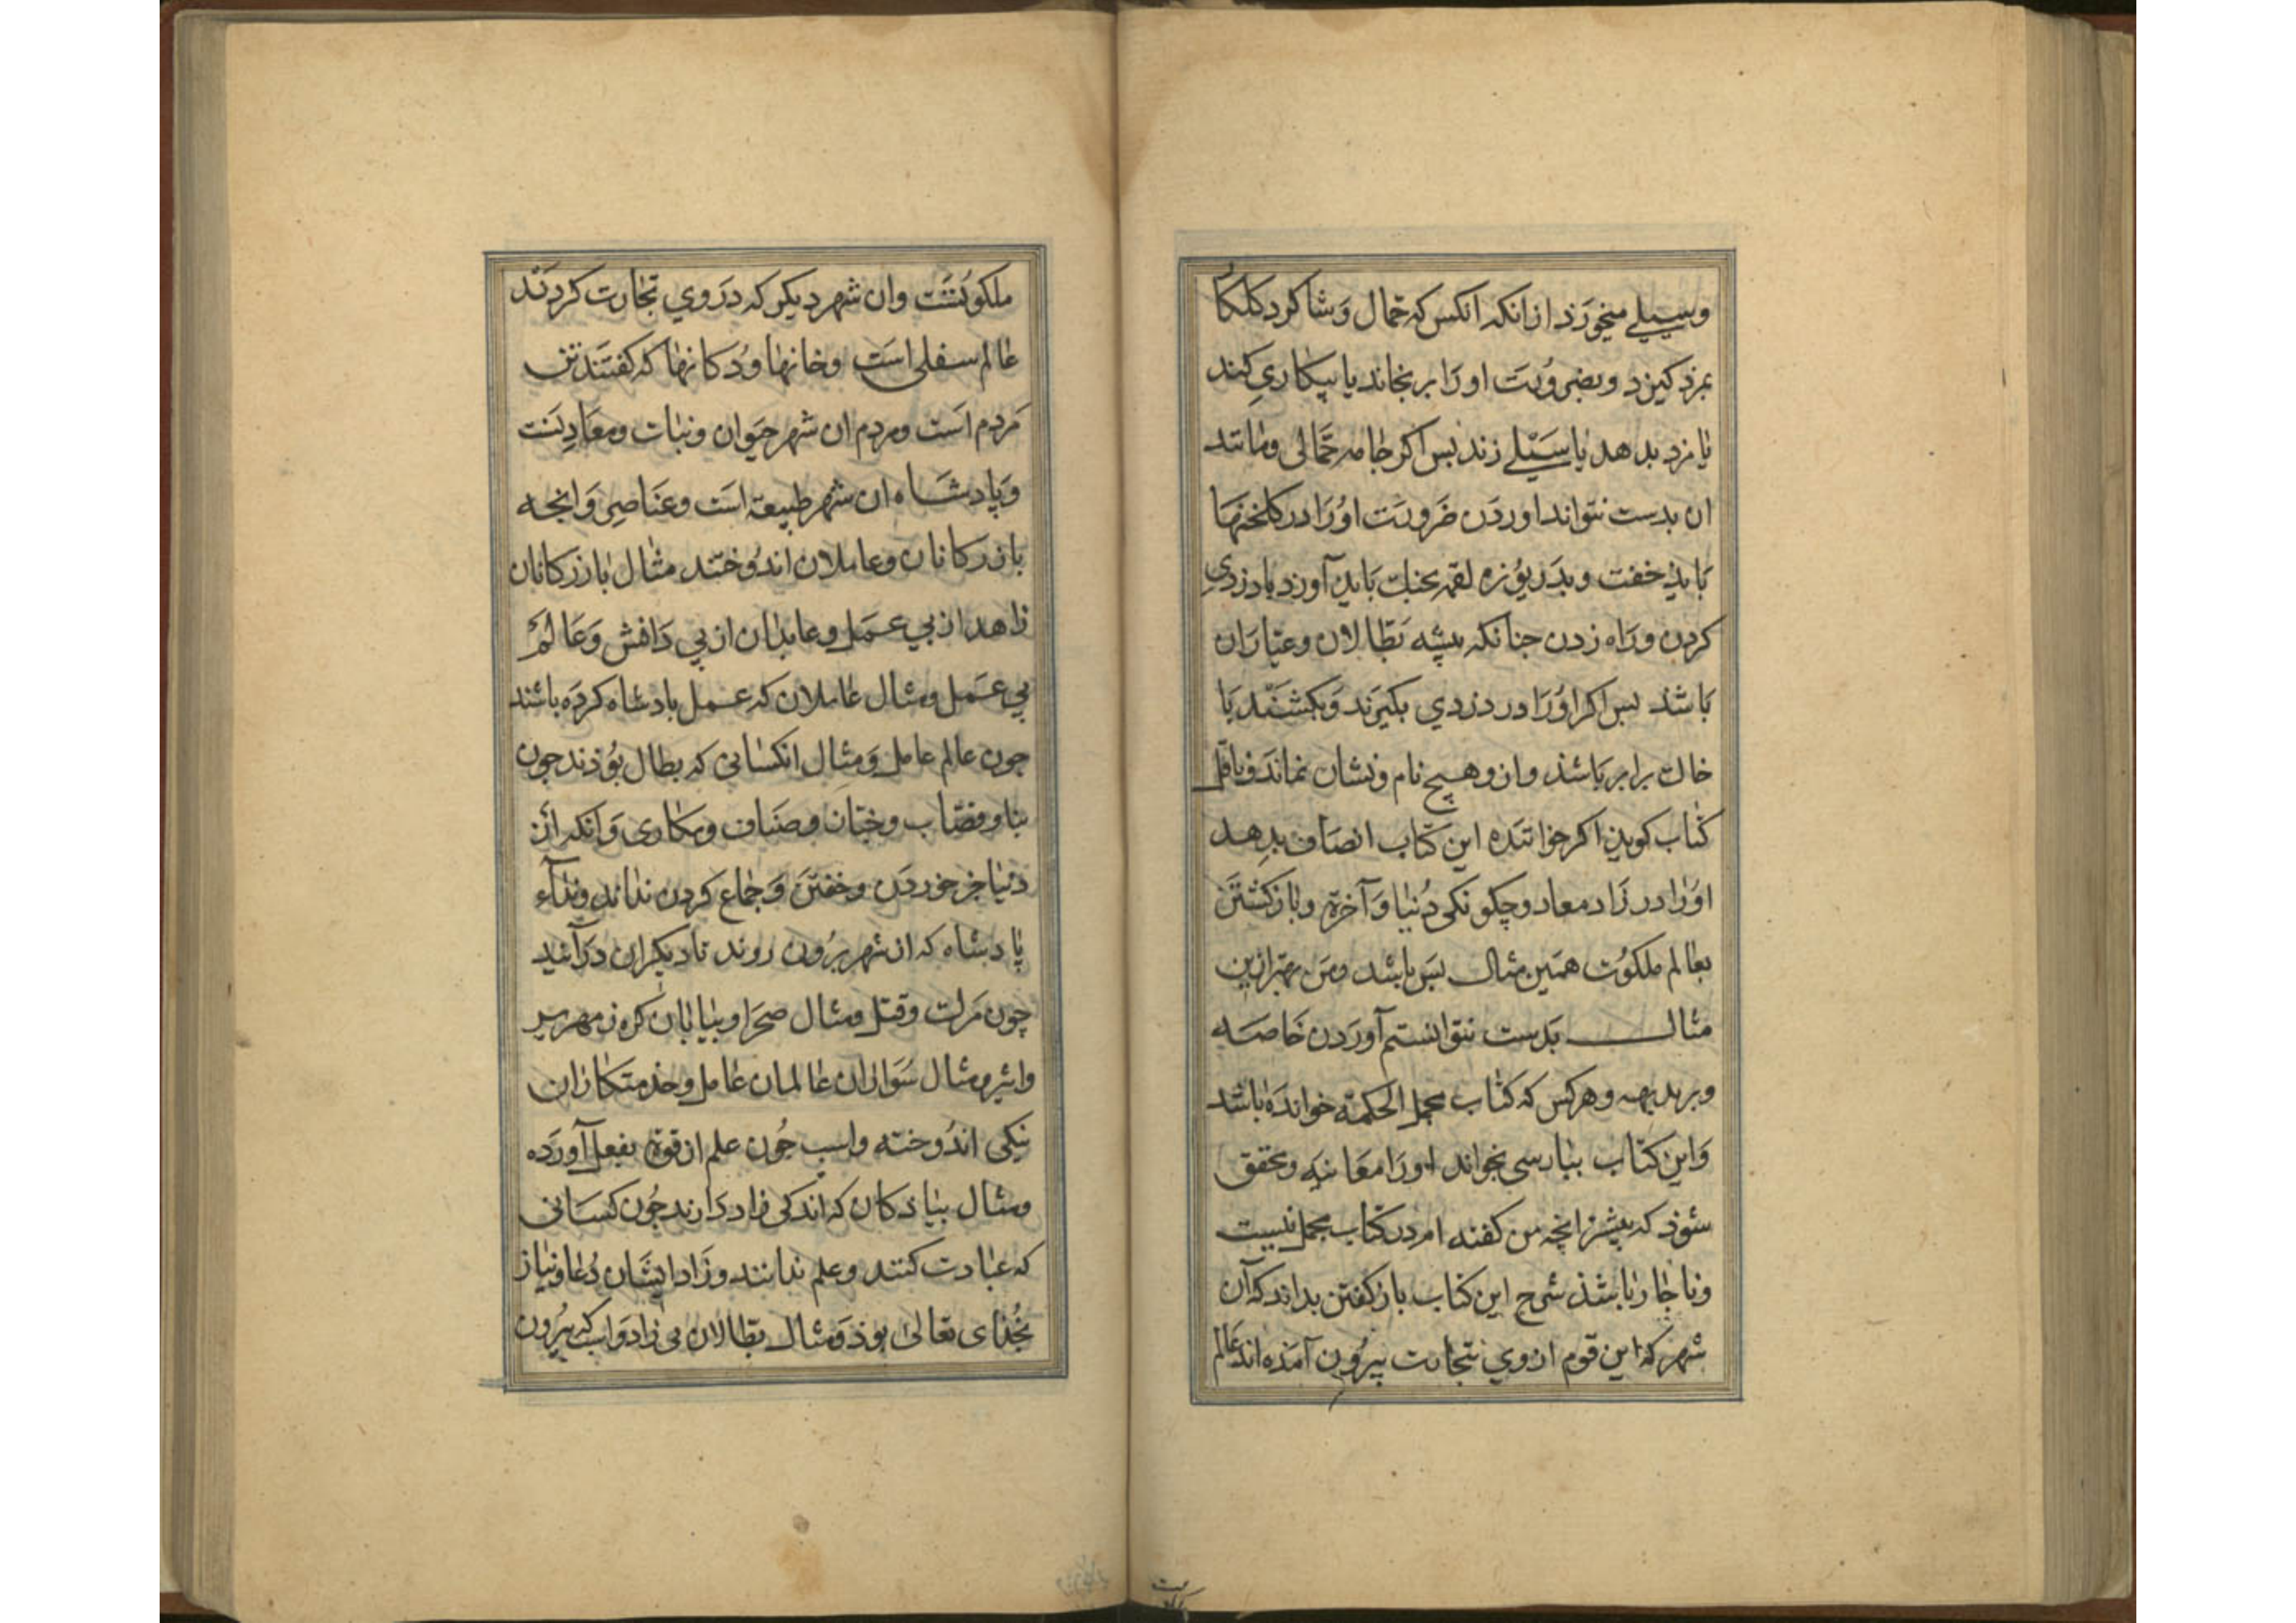 وسیلے میخورذ ازانکه انکس که حمال وشاکرد کلکا
بمزد کیرد وبضرورت اورا برنجاند یا بیکاری کند
یا مزد بدهد یا سیلے زند بس اکر جامه حمالی ومانند
ان بدست نتواند اوردن ضرورت اورا در کلخنها
بایذ خفت وبدریوزه لقمه بجنك بایذ آورد یا دزدی
کردن وراه زدن جنانکه پیشه بطالان وعیاران
باشد بس اکر اورا در دزدی بکیرند وبکشند با
خاك برابر باشذ وازو هیچ نام ونشان نماند وناقل
کتاب کویذ اکر خواننده این کتاب انصاف بدهد
اورا در زاد معاد وچکونکی دنیا وآخرة وبازکشتن
بعالم ملکوت همین مثال بس باشد ومن بهتر ازین
مثال بدست نتوانستم آوردن خاصه
وبر بدیهه وهرکس که کتاب مجمل الحکمة خوانده باشد
واین کتاب بپارسی بخواند اورا معاینه ومحقق
شوذ که بیشتر انچه من کفته ام در کتاب مجمل نیست
وناجار باشذ شرح این کتاب بازکفتن بداند که آن
شهر که این قوم ازوی بتجارت بیرون آمذه اند عالم
ملکوتست وان شهر دیکر که دروی تجارت کردند
عالم سفلی است وخانها ودکانها که کفتند تن
مردم است ومردم ان شهر حیوان ونبات ومعادنست
وپادشاه ان شهر طبیعة است وعناصر وانجه
بازرکانان وعاملان اندوختند مثال بازرکانان
زاهد از بی عمل وعابدان از بی دانش وعالم
بی عمل ومثال عاملان که عمل بادشاه کرده باشند
جون عالم عامل ومثال انکسانی که بطال بوذند جون
بنا وقصاب وختان وصناف ومکاری وانکه ازن
دنیا جز خوردن وخفتن وجماع کردن نداند ونداء
پادشاه که ازن شهر برون روند تا دیکران درآیند
چون مرك وقتل ومثال صحرا وبیابان کره زمهریر
واثیر ومثال سواران عالمان عامل وخذمتکاران
نیکی اندوخته واسب جون علم از قوة بفعل آورده
ومثال بیاذکان که اندکی زاد دارند جون کسانی
که عبادت کنند وعلم ندانند وزاد ایشان دعا ونیاز
بخدای تعالی بوذ ومثال بطالان بی زاد واب که بیرون